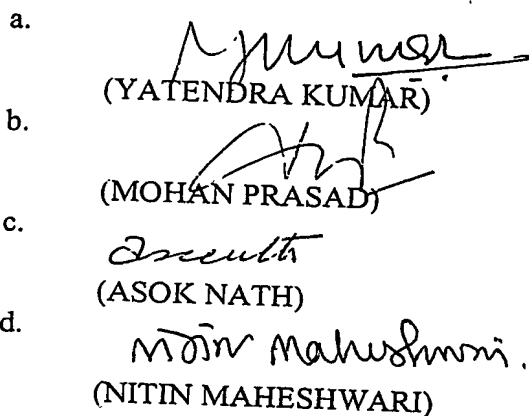 a.
(YATENDRA KUMAR)
b.
(MOHAN PRASAD)
c.
(ASOK NATH)
d.
Nitin Maheshwari.
(NITIN MAHESHWARI)